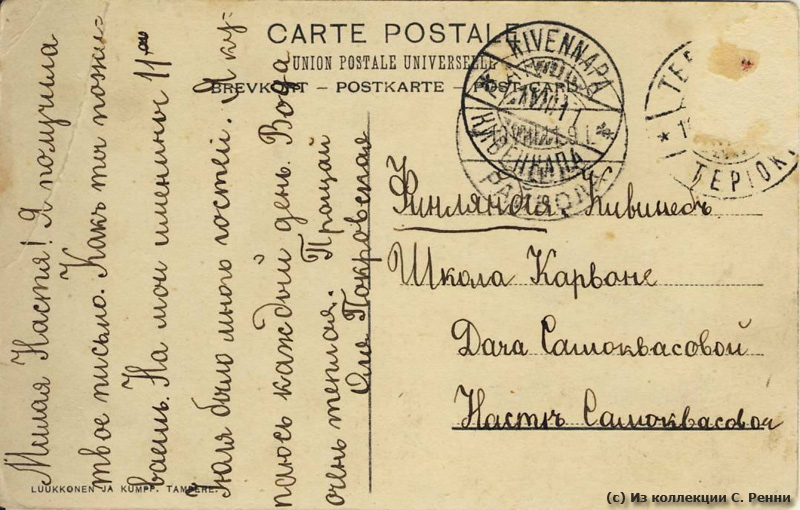 CARTE POSTALE
UNION POSTALE UNIVERSELLE
BREVKORT – POSTKARTE – POST-CARD
Милая Настя! Я получила
твое письмо. Какъ ты пожи-
ваешь. На мои именины 11ого
Іюля было много гостей. Я ку-
паюсь каждый день. Вода
очень теплая. Прощай
Оля Покровская
Финляндія Кивинебъ
Школа Карване
Дача Самоквасовой
Настѣ Самоквасовой
KIVENNAPA
КИВЕННАПА
РАЙВОЛА
TERIOKI
LUUKKONEN JA KUMPP. TAMPERE.
(с) Из коллекции С. Ренни